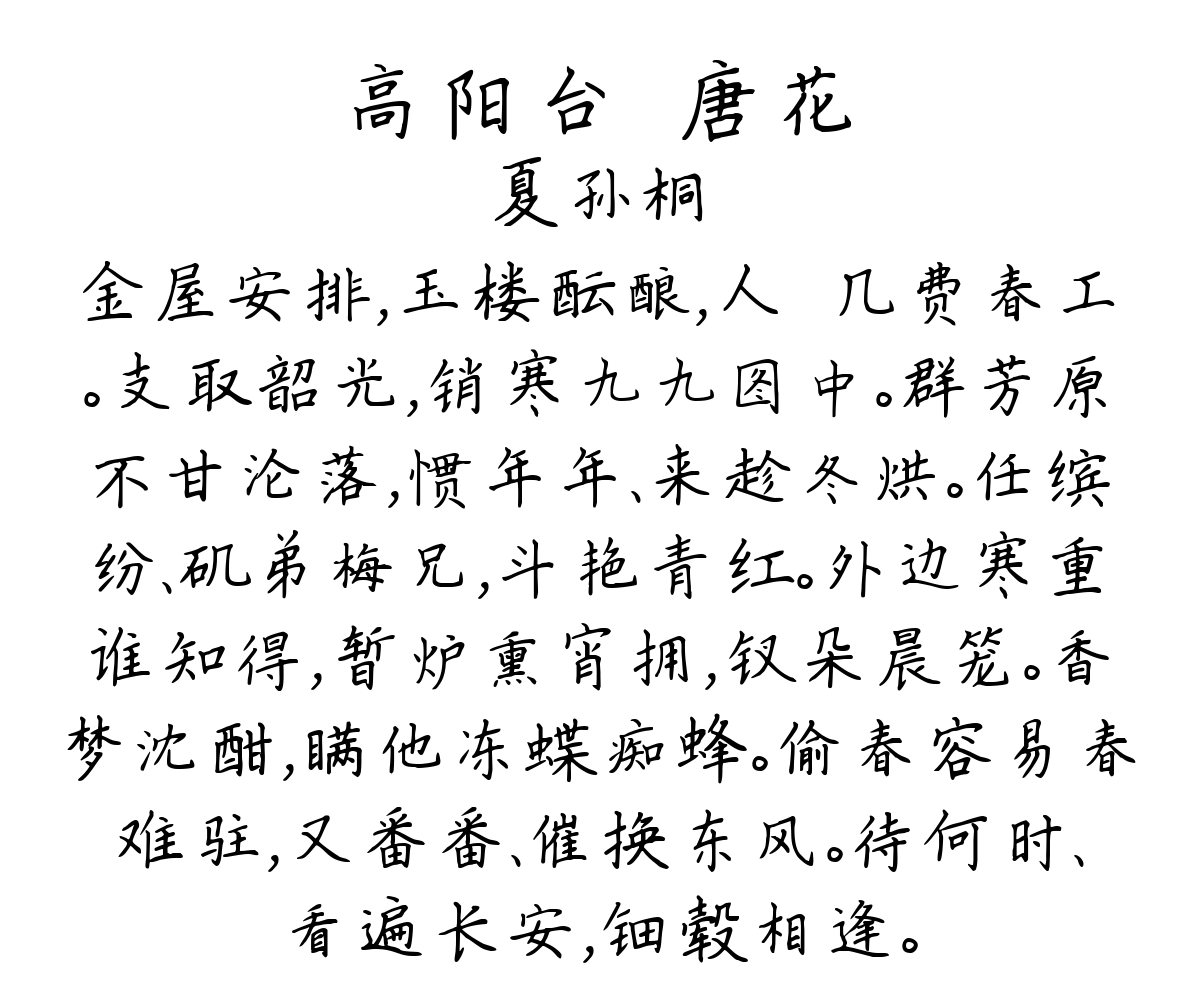 高阳台 唐花
夏孙桐
金屋安排,玉楼酝酿,人 几费春工
。支取韶光,销寒九九图中。群芳原
不甘沦落,惯年年、来趁冬烘。任缤
纷、矶弟梅兄,斗艳青红。外边寒重
谁知得,暂炉熏宵拥,钗朵晨笼。香
梦沈酣,瞒他冻蝶痴蜂。偷春容易春
难驻,又番番、催换东风。待何时、
看遍长安,钿毂相逢。